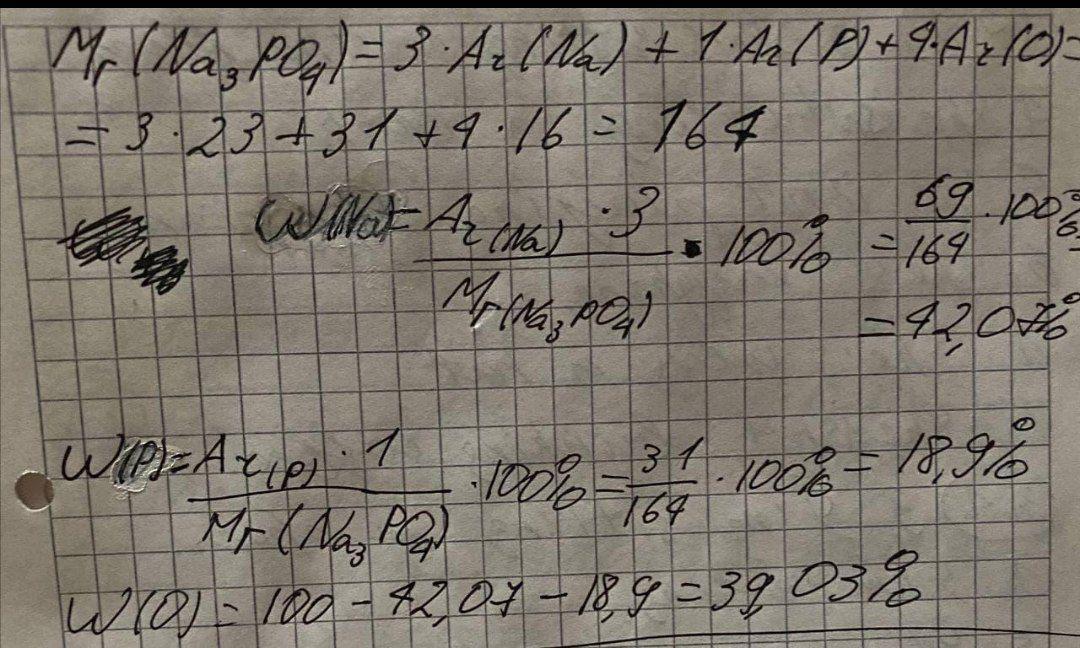 Mr(Na₃PO₄) = 3·Ar(Na) + 1·Ar(P) + 4·Ar(O) =
= 3·23 + 31 + 4·16 = 164
W(Na) = Ar(Na)·3 / Mr(Na₃PO₄) · 100% = 69/164 · 100% =
= 42,07%
W(P) = Ar(P)·1 / Mr(Na₃PO₄) · 100% = 31/164 · 100% = 18,9%
W(O) = 100 - 42,07 - 18,9 = 39,03%